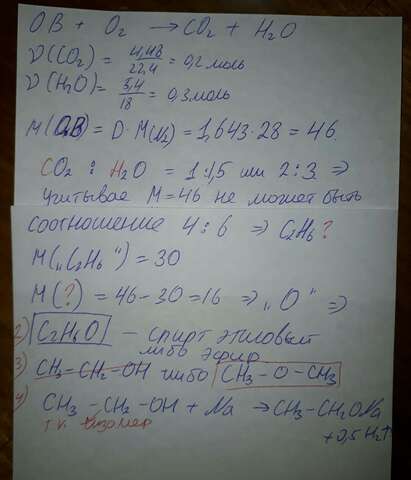 ОВ + O₂ → CO₂ + H₂O
ν(CO₂) = 4,48/22,4 = 0,2 моль
ν(H₂O) = 5,4/18 = 0,3 моль
M(ОВ) = D·M(N₂) = 1,643·28 = 46
CO₂ : H₂O = 1:1,5 или 2:3 ⇒
учитывая M=46 не может быть
соотношение 4:6 ⇒ C₂H₆?
M("C₂H₆") = 30
M(?) = 46-30=16 ⇒ "O" ⇒
2) C₂H₆O – спирт этиловый
либо эфир
3) CH₃-CH₂-OH либо CH₃-O-CH₃
4) CH₃-CH₂-OH + Na → CH₃-CH₂ONa
т.к. изомер + 0,5 H₂↑